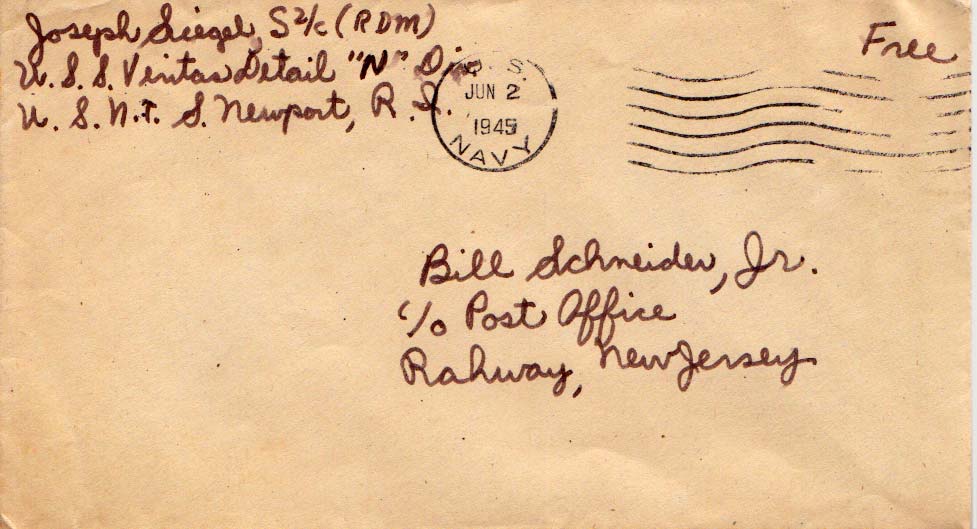 Joseph Siegel, S 2/c (RDM)
U. S. S. Vinitas Detail "N" Div
U. S. N. T. S. Newport, R. I.
Free
U. S.
JUN 2
1945
NAVY
Bill Schneider, Jr.
c/o Post Office
Rahway, New Jersey